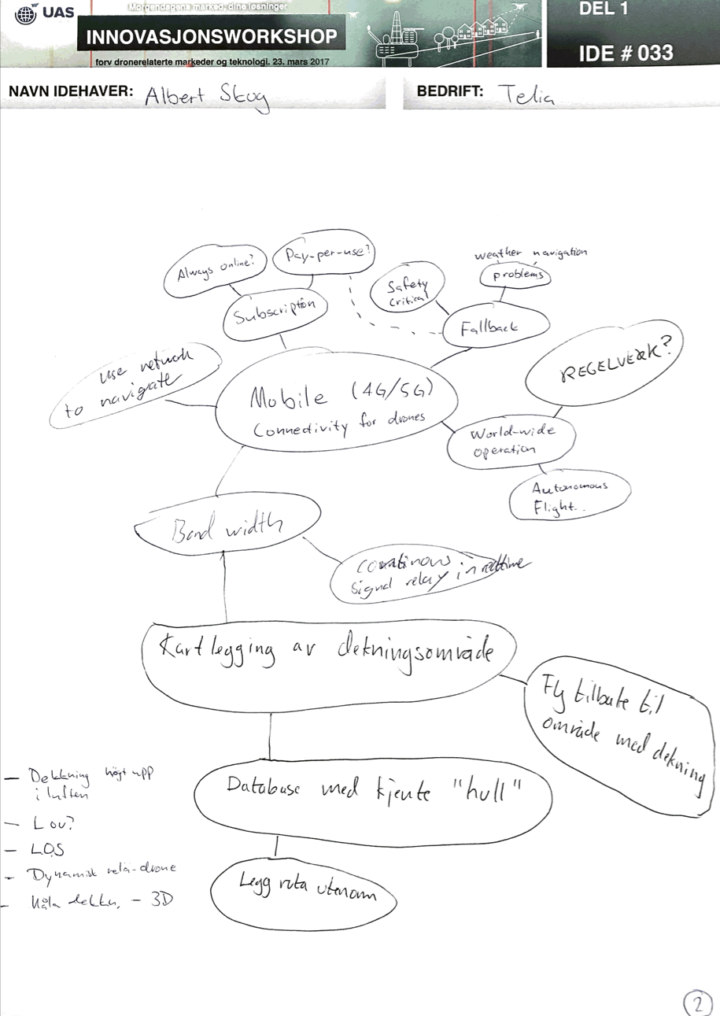 UAS
Morgendagens marked, dine løsninger
INNOVASJONSWORKSHOP
forv dronerelaterte markeder og teknologi. 23. mars 2017
DEL 1
IDE # 033
NAVN IDEHAVER: Albert Skog
BEDRIFT: Telia
Always online?
Pay-per-use?
Subscription
Safety
Critical
weather navigation
problems
Fallback
use network
to navigate
Mobile (4G/5G)
Connectivity for drones
REGELVERK?
World-wide
operation
Autonomous
Flight.
Band width
continous
signal relay in realtime
Kartlegging av dekningsområde
Fly tilbake til
område med dekning
Database med kjente "hull"
Legg ruta utenom
– Dekkning högt upp
i luften
– Lov?
– LOS
– Dynamisk relä-drone
– 3D
2